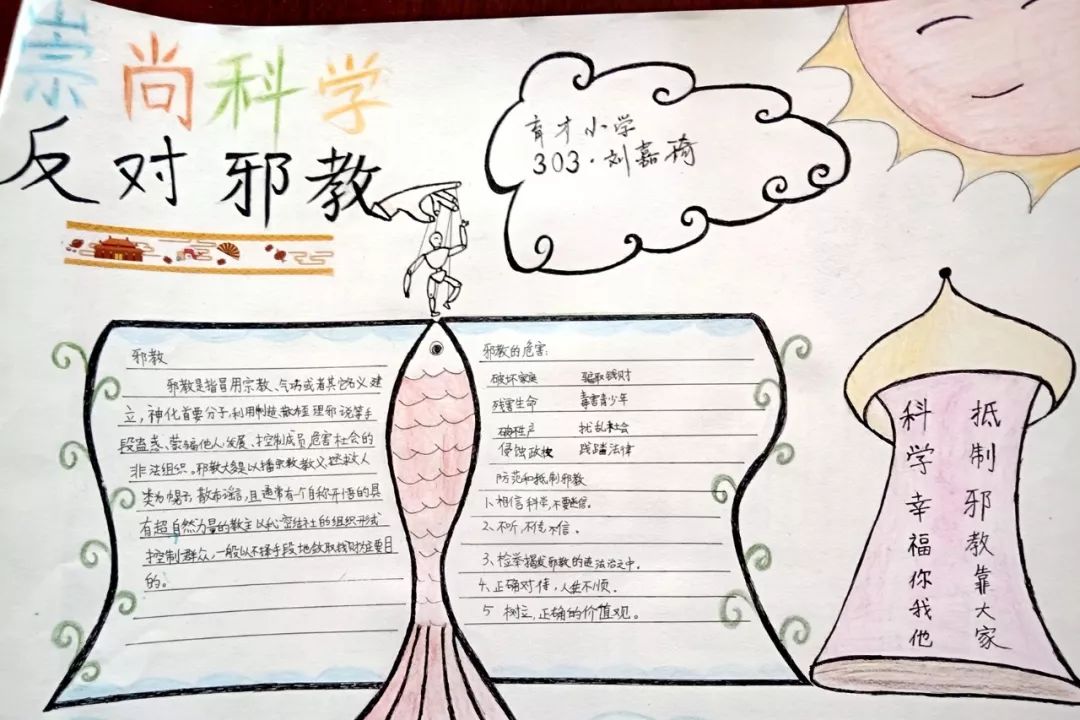 崇尚科学
反对邪教
育才小学
303·刘嘉琦
邪教
邪教是指冒用宗教、气功或者其它名义建
立,神化首要分子,利用制造、散布歪理邪说等手
段蛊惑、蒙骗他人,发展、控制成员,危害社会的
非法组织。邪教大多是以播宗教教义、拯救人
类为幌子,散布谣言,且通常有一个自称开悟的具
有超自然力量的教主以秘密结社的组织形式
控制群众,一般以不择手段地敛取钱财为主要目
的。
邪教的危害:
破坏家庭 骗取钱财
残害生命 毒害青少年
破坏生产 扰乱社会
侵蚀政权 践踏法律
防范和抵制邪教
1、相信科学,不要迷信。
2、不听,不传,不信。
3、检举揭发邪教的违法
4、正确对待,人生不顺。
5 树立,正确的价值观。
抵制邪教靠大家
科学幸福你我他